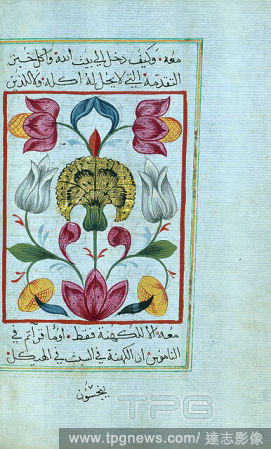 معه. وكيف دخل الى بيت الله واكل خبز
التقدمة التي لا يحل له اكله ولا للذين
معه الا للكهنة فقط. اوما قراتم في
الناموس ان الكهنة في السبت في الهيكل
ينجسون
TPG
www.tpgnews.com/達志影像